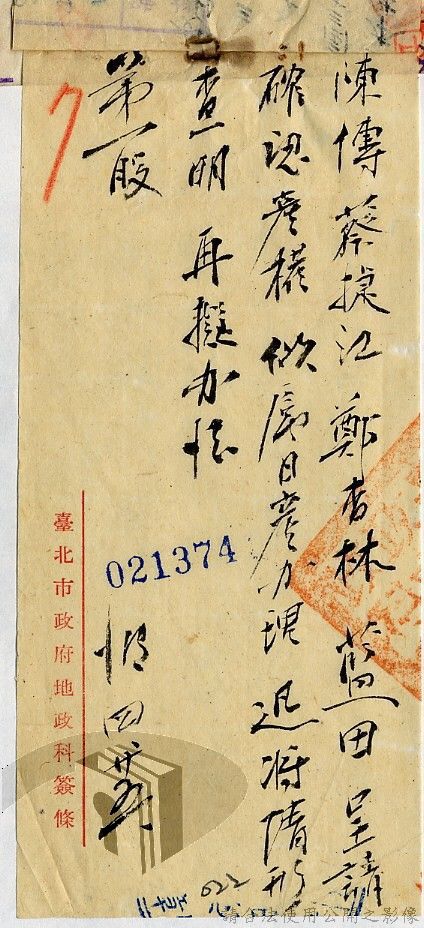 陳傳 蔡㨗江 鄭杏林 藍田 呈請
確認產權 似屬日產 办理 迅將情形
查明 再擬办法
第一股
021374
四
臺北市政府地政科簽條
請合法使用公開之影像